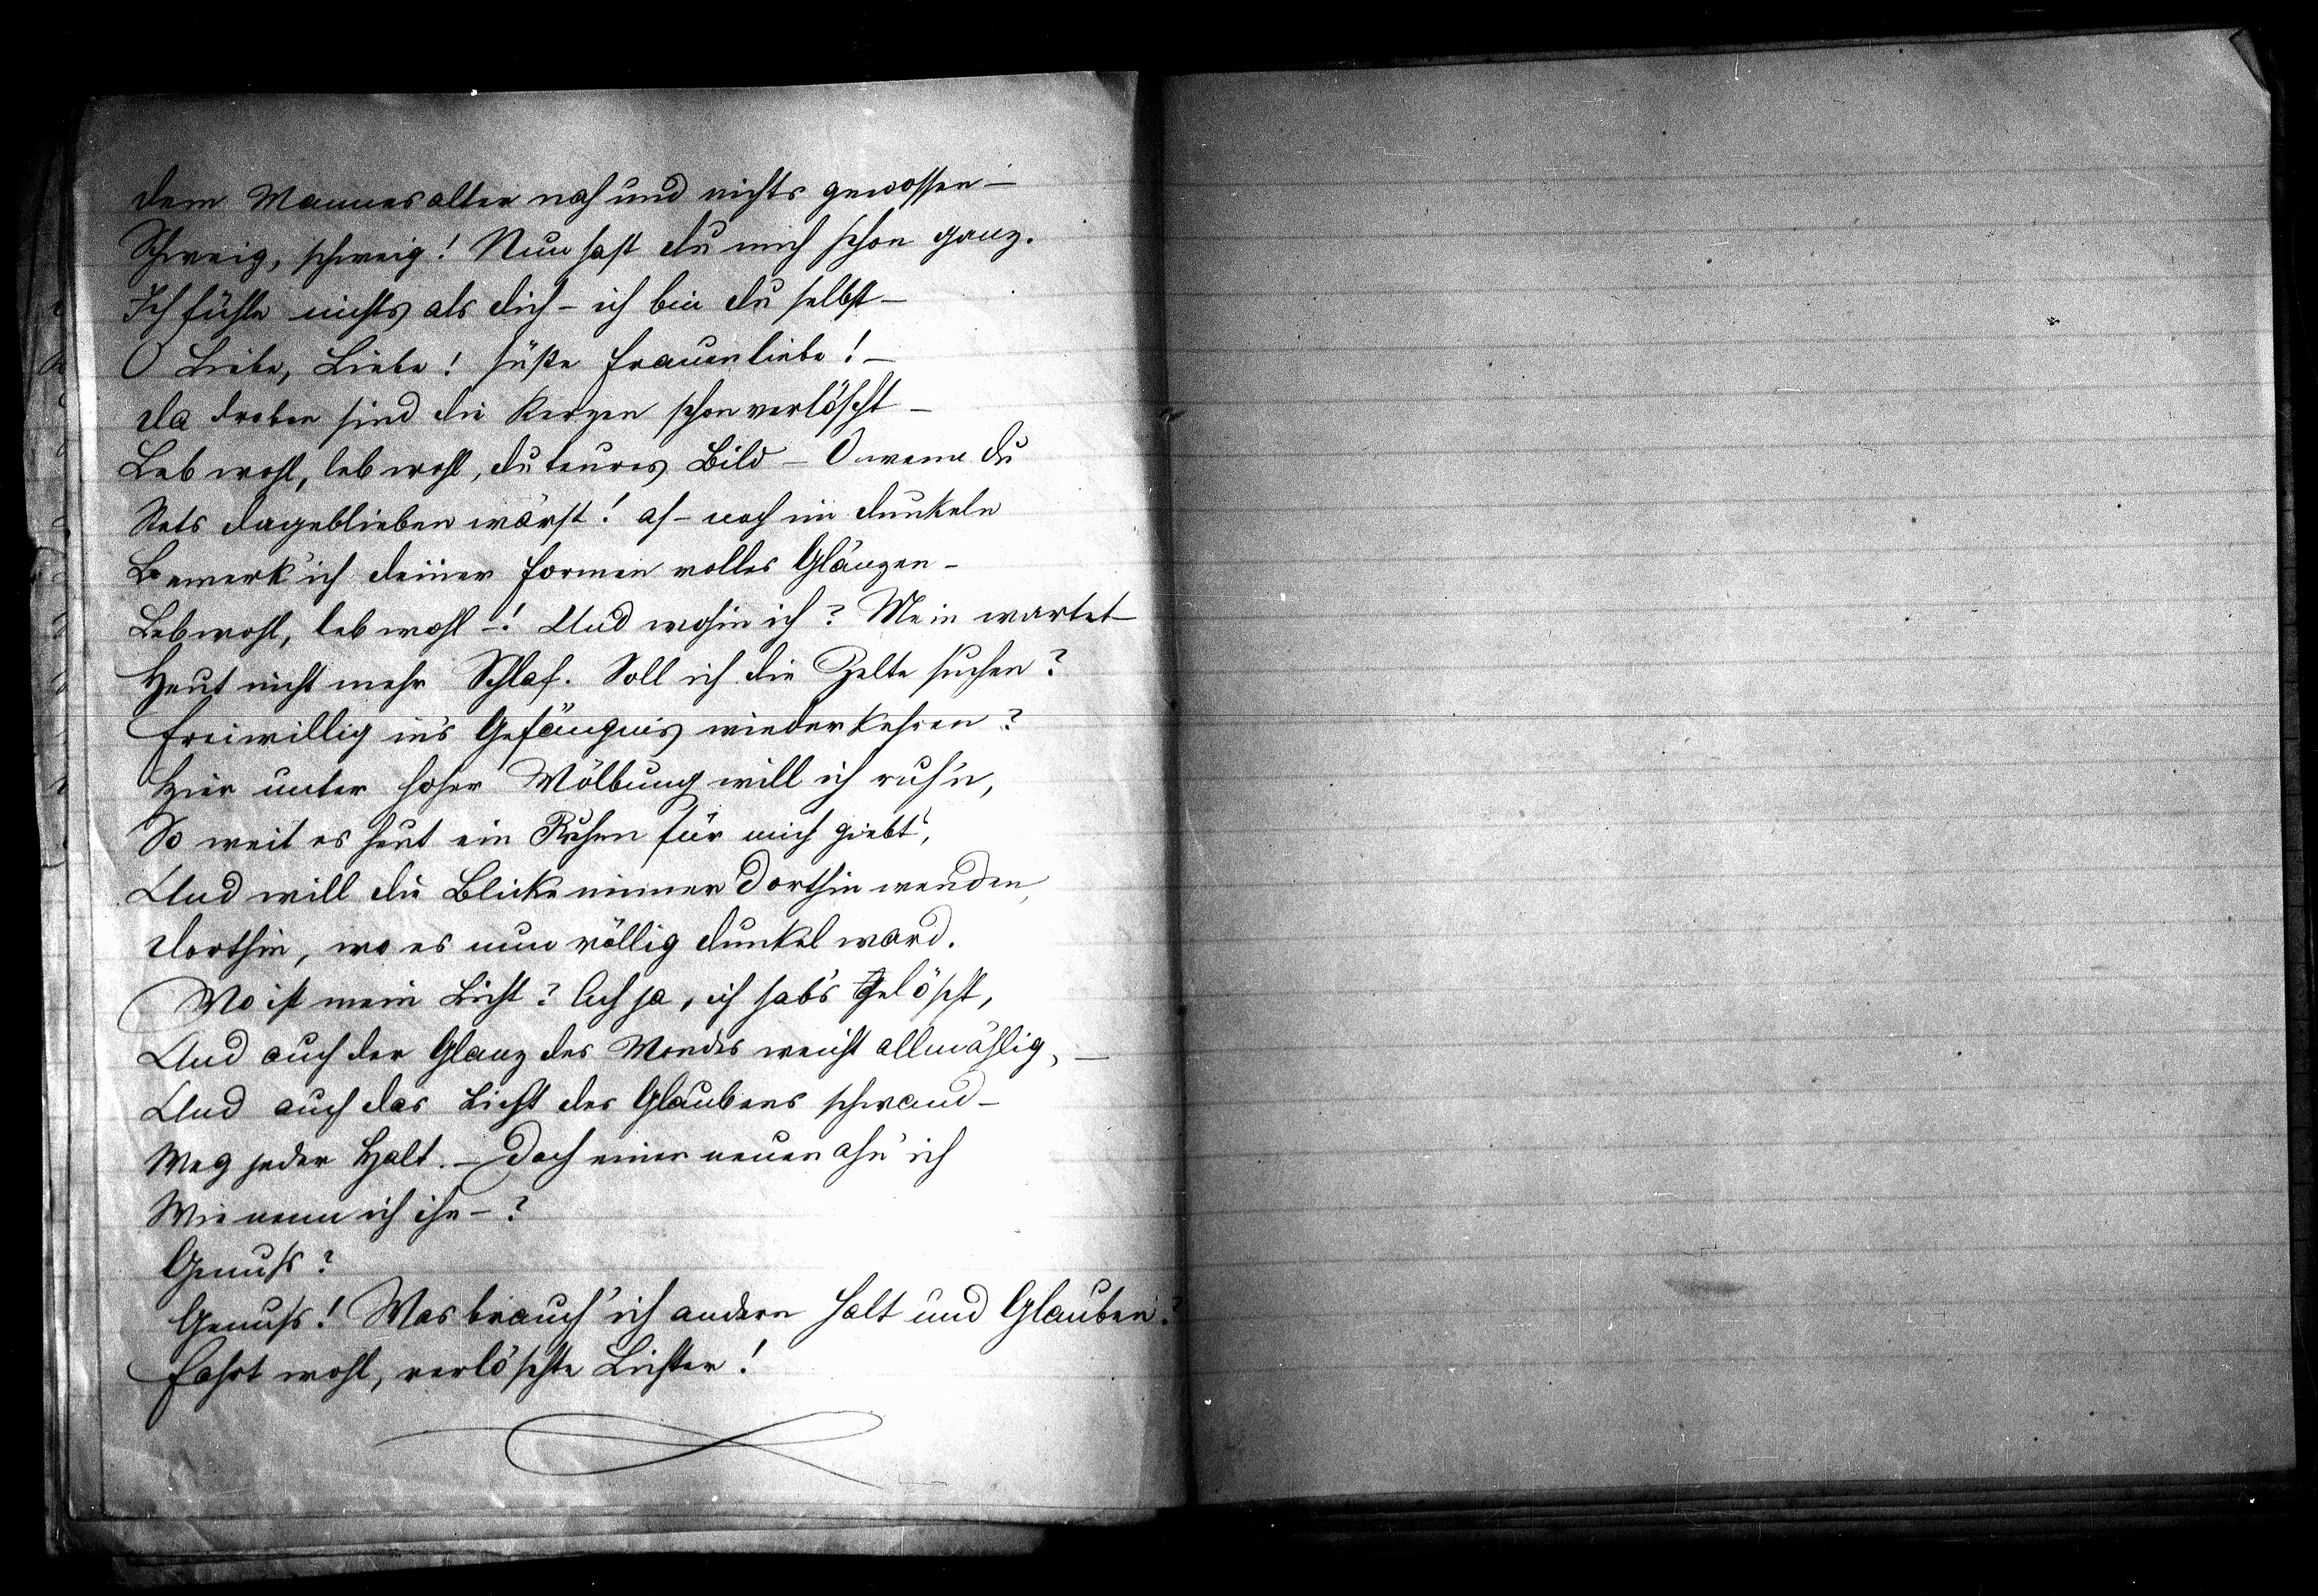 Dem Mannesalter nah und nichts genossen –
Schweig, schweig! Nun hast du mich schon ganz.
Ich fühle nichts als dich – ich bin du selbst –
O Liebe, Liebe! süße Frauenliebe! –
Da droben sind die Kerzen schon verlöscht –
Leb wohl, leb wohl, du teures Bild – O wenn du
Stets dageblieben wärst! ah – noch im Dunkeln
Bemerk' ich deiner Formen volles Glänzen –
Leb wohl, leb wohl –! Und wohin ich? Mein wartet
Heut nicht mehr Schlaf. Soll ich die Zelte suchen?
Freiwillig in's Gefängnis wiederkehren?
Hier unter hoher Wölbung will ich ruh'n,
So weit es heut ein Ruhen für mich giebt,
Und will die Blicke immer dorthin wenden,
Dorthin, wo es nun völlig dunkel ward.
Wo ist mein Licht? Ach ja, ich hab's gelöscht,
Und auch der Glanz des Mondes weicht allmählig, –
Und auch das Licht des Glaubens schwand –
Weg jeder Halt. – Doch einen neuen ahn' ich
Wie nenn ich ihn – ?
Genuß?
Genuß! Was brauch' ich andern Halt und Glauben?
Fahrt wohl, verlöschte Lichter!